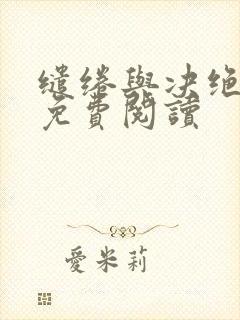 缱绻與决绝
免費閱讀
愛米莉